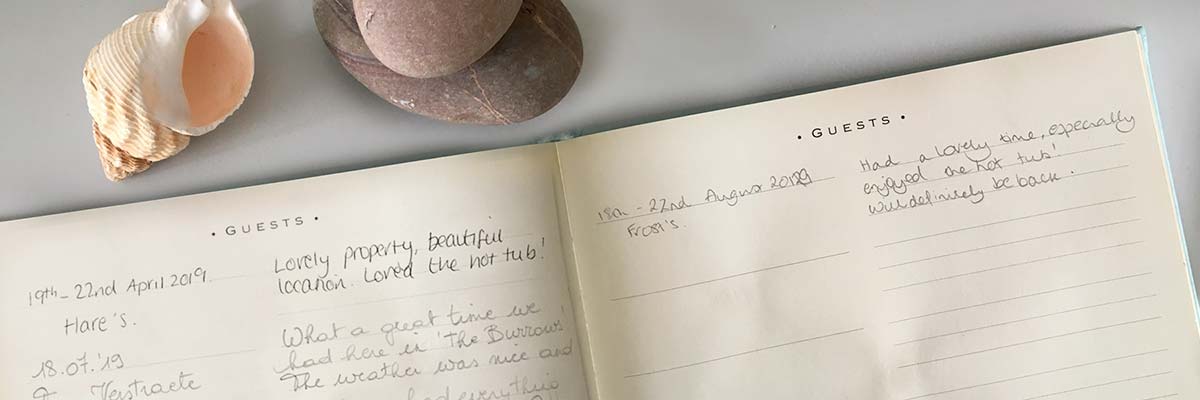 • GUESTS •
19th - 22nd April 2019.
Hare's.
Lovely property, beautiful
location. Loved the hot tub!
18.07.'19
Verstraete
What a great time we
had here in 'The Burrows'
The weather was nice and
had everything
• GUESTS •
18th - 22nd August 2019
Frost's.
Had a lovely time, especially
enjoyed the hot tub!
will definitely be back.